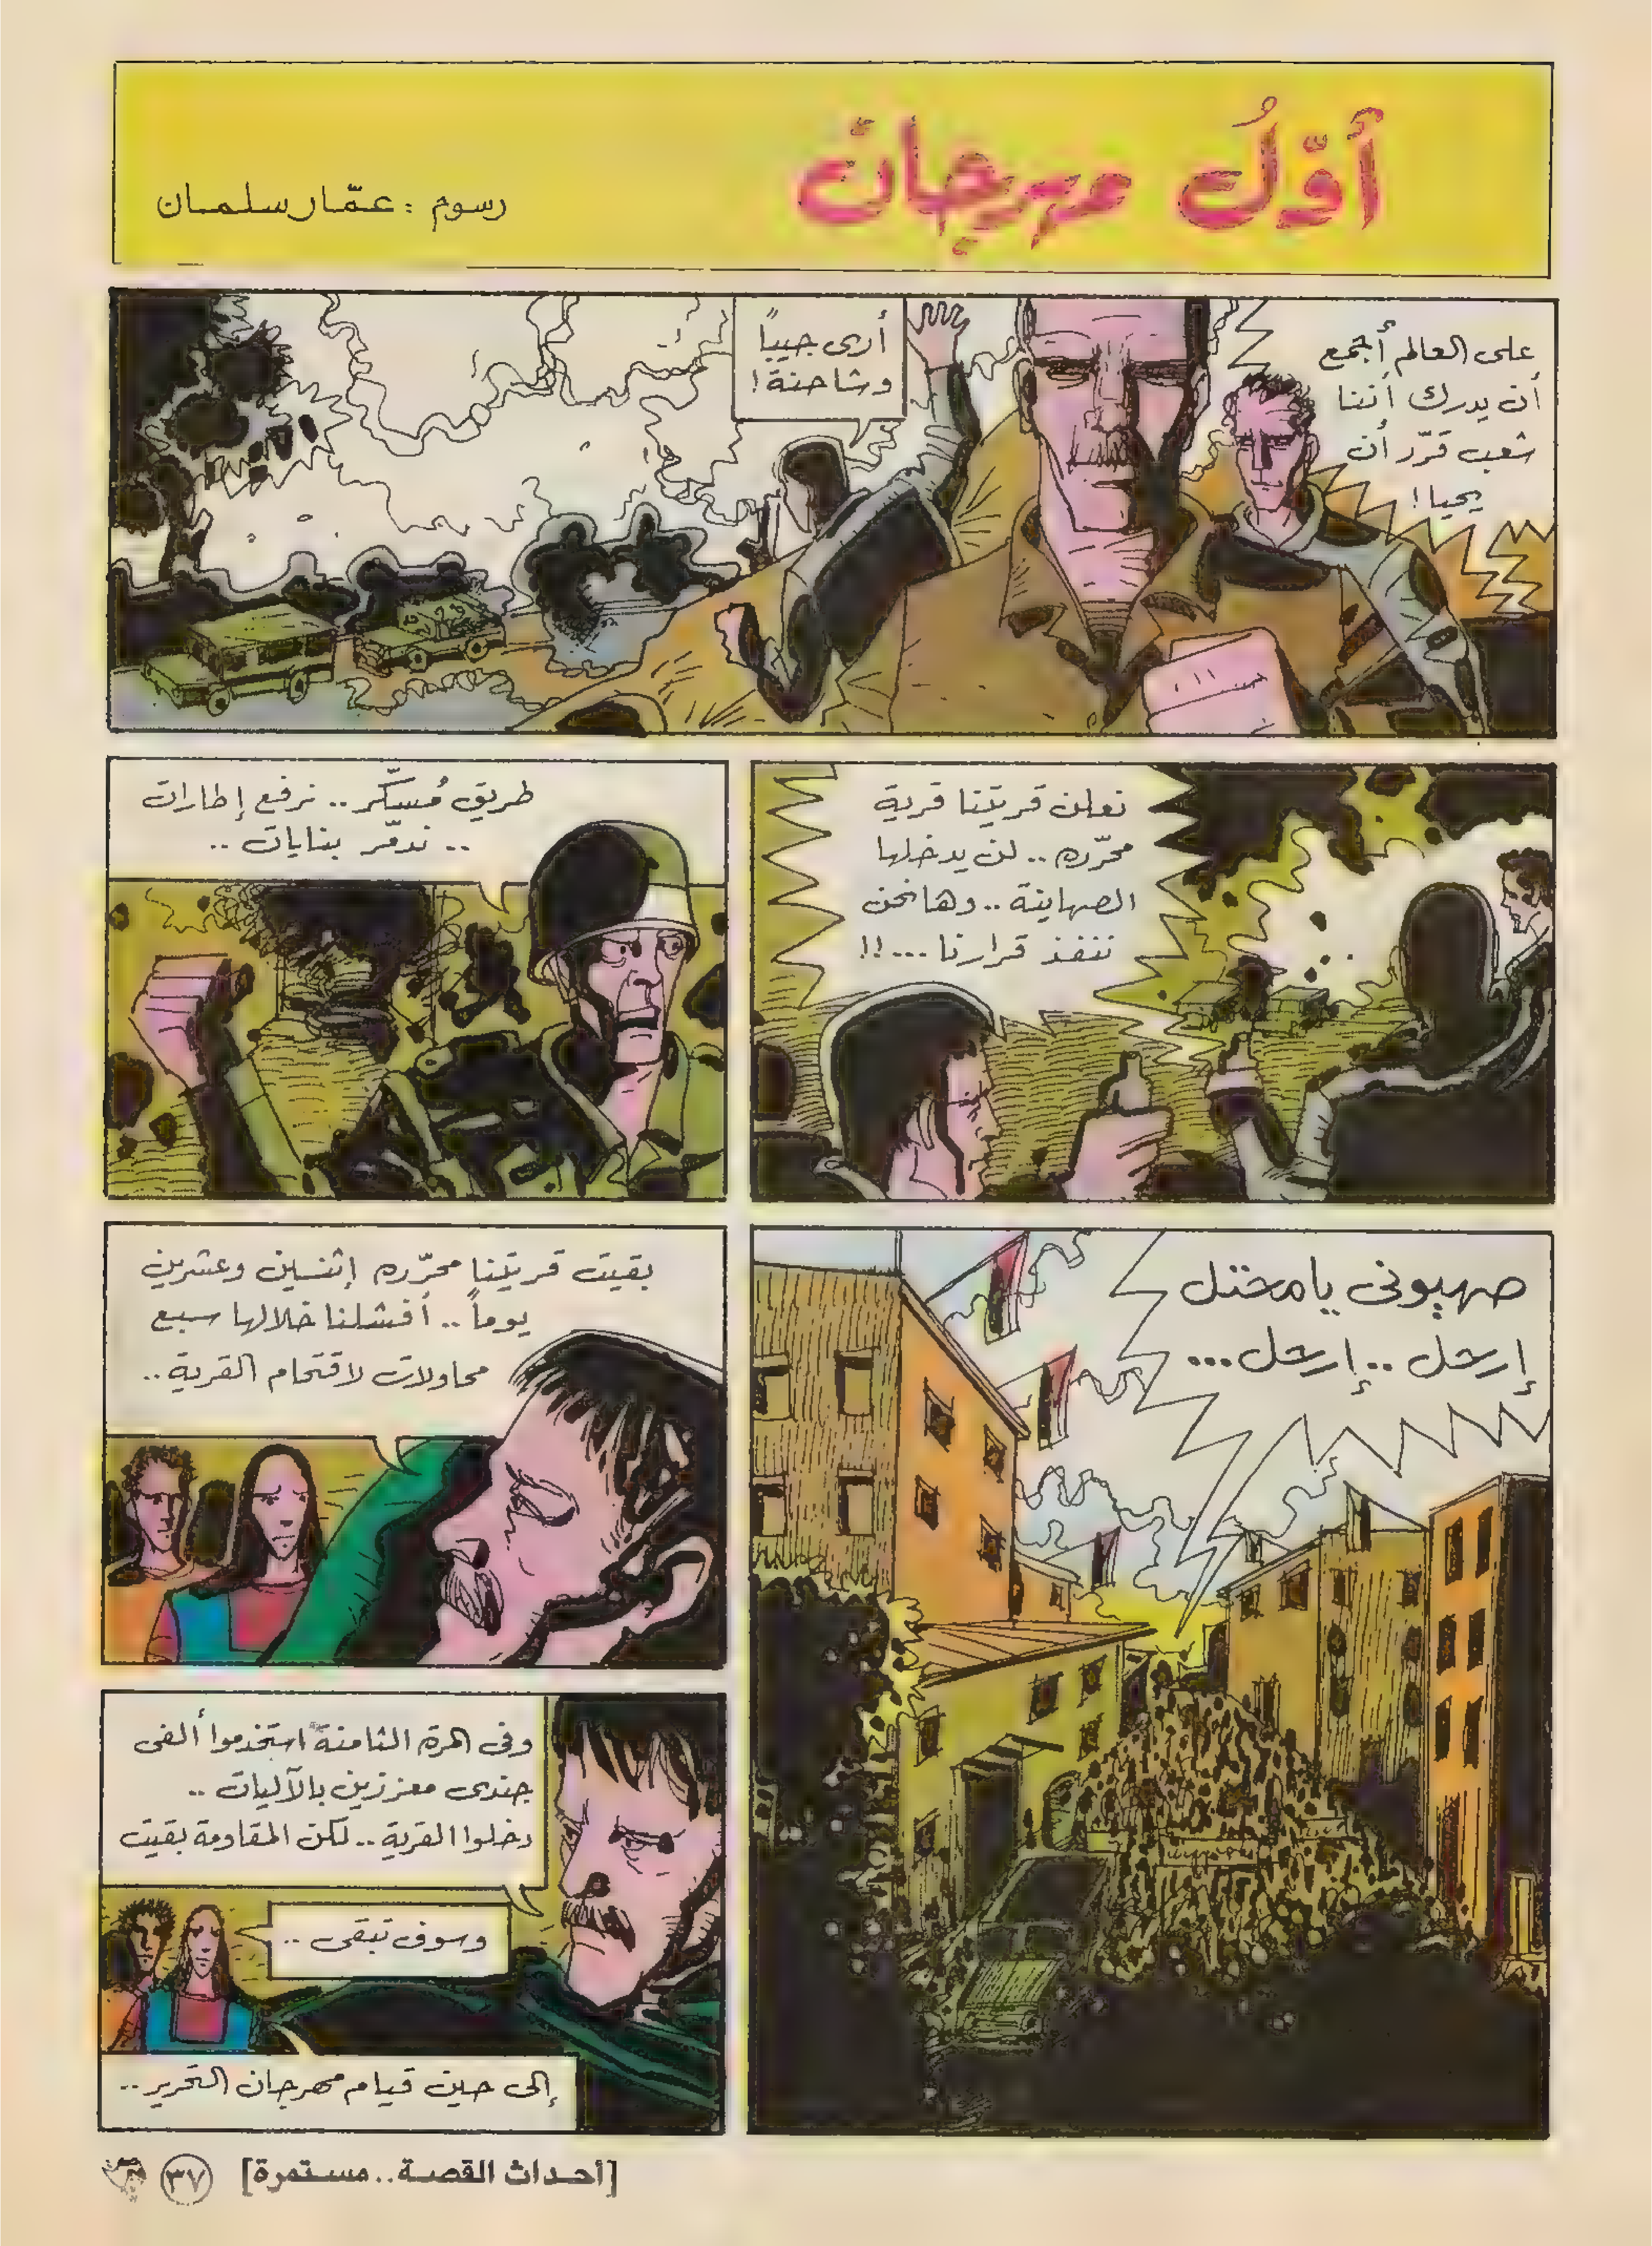 أوّلُ مهرجان
رسوم : عمّار سلمان
على العالم أجمع
أن يدرك أننا
شعب قرّر أن
يحيا !
أرى جيباً
وشاحنة !
نعلن قريتنا قرية
محرّره .. لن يدخلها
الصهاينة .. وها نحن
ننفذ قرارنا ...!!
طريق مُسكّر .. نرفع إطارات
.. ندمّر بنايات ..
صهيونى يا محتل
إرحل .. إرحل ...
بقيت قريتنا محرّره إثنين وعشرين
يوماً .. أفشلنا خلالها سبع
محاولات لاقتحام القرية ..
وفى المرة الثامنة استخدموا ألفى
جندى معززين بالآليات ..
دخلوا القرية .. لكن المقاومة بقيت
وسوف تبقى ..
إلى حين قيام مهرجان التحرير ..
[أحداث القصة.. مستمرة] ٣٧